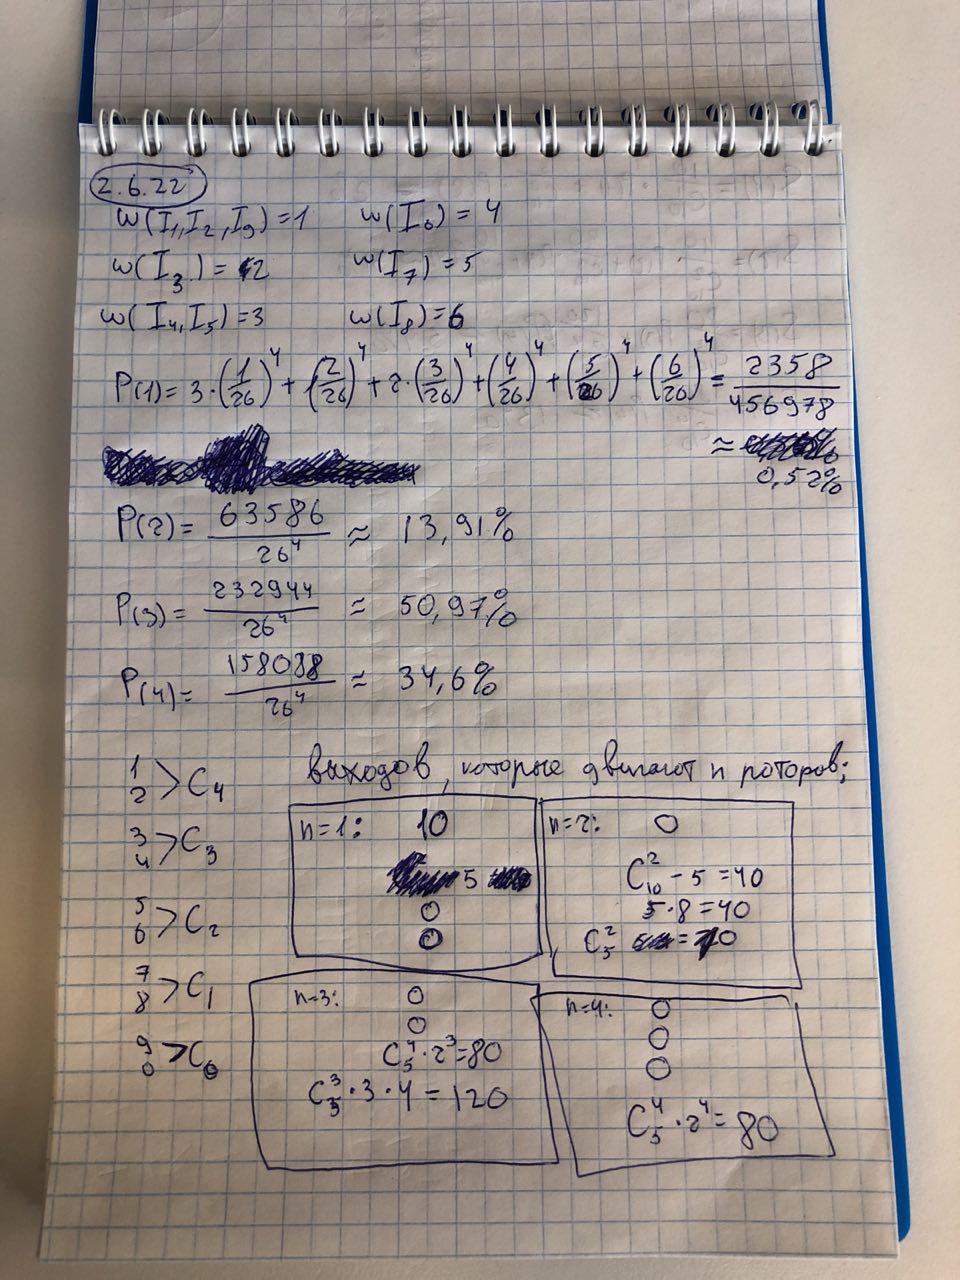 2.6.22
w(I₁,I₂,I₉)=1 w(I₆)=4
w(I₃)=2 w(I₇)=5
w(I₄,I₅)=3 w(I₈)=6
P(1)=3·(1/26)⁴+(2/26)⁴+2·(3/26)⁴+(4/26)⁴+(5/26)⁴+(6/26)⁴=2358/456978
≈
0,52%
P(2)=63586/26⁴≈13,91%
P(3)=232944/26⁴≈50,97%
P(4)=158088/26⁴≈34,6%
1
2 >C₄
3
4 >C₃
5
6 >C₂
7
8 >C₁
9
0 >C₀
выходов, которые двигают n роторов:
n=1: 10
5
0
0
n=2: 0
C₁₀²-5=40
5·8=40
C₅²=10
n=3: 0
0
C₅⁴·2³=80
C₅³·3·4=120
n=4: 0
0
0
C₅⁴·2⁴=80